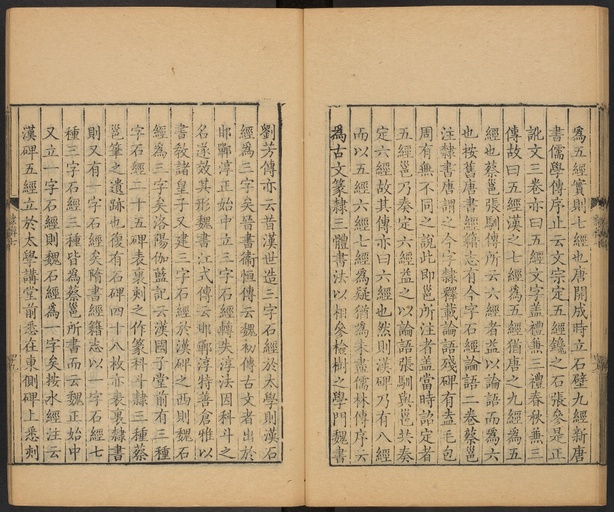 為五經實則七經也唐開成時立石壁九經新唐
書儒學傳序止云文宗定五經鑱之石張參是正
訛文三卷亦曰五經文字蓋禮兼三禮春秋兼三
傳故曰五經漢之七經為五經猶唐之九經為五
經也蔡邕張馴傳所云六經者益以論語而為六
也按舊唐書經籍志有今字石經論語二卷蔡邕
注隸書唐謂之今字隸釋載論語殘碑有盍毛包
周有無不同之說此即邕所注者蓋當時詔定者
五經邕乃奏定六經益之以論語張馴與邕共奏
定六經故其傳亦曰六經也然則漢碑乃有八經
而以五經六經七經為疑猶為未盡儒林傳序云
為古文篆隸三體書法以相參檢樹之學門魏書
劉芳傳亦云昔漢世造三字石經於太學則漢石
經為三字矣晉書衛恒傳云魏初傳古文者出於
邯鄲淳正始中立三字石經轉失淳法因科斗之
名遂效其形魏書江式傳云邯鄲淳特善倉雅以
書教諸皇子又建三字石經於漢碑之西則魏石
經為三字矣洛陽伽藍記云漢國子堂前有三種
字石經二十五碑表裏刺之作篆科斗隸三種蔡
邕筆之遺跡也復有石碑四十八枚亦表裏隸書
則又有一字石經矣隋書經籍志以一字石經七
種三字石經三種皆為蔡邕所書而云魏正始中
又立一字石經則魏石經為一字矣按水經注云
漢碑五經立於太學講堂前悉在東側碑上悉刺